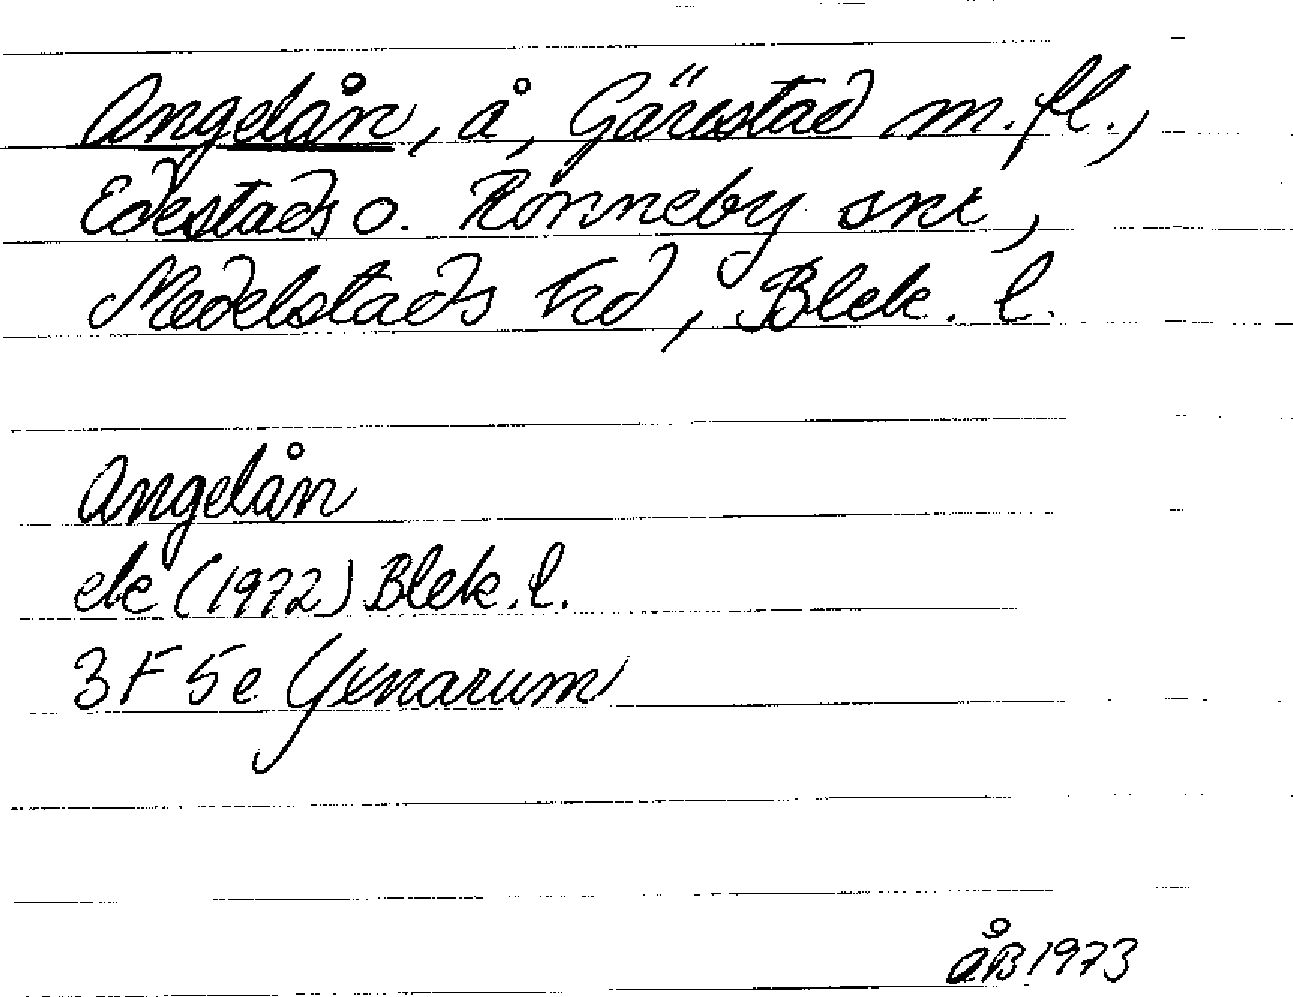 Angelån, å, Gärestad m.fl.,
Edestads o. Ronneby snr,
Medelstads hd, Blek. l.
Angelån
ek (1972) Blek. l.
3F 5e Yxnarum
ÅB 1973